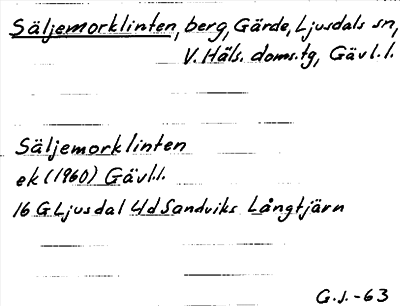 Säljemorklinten, berg, Gärde, Ljusdals sn,
V. Häls. doms.tg, Gävl.l.
Säljemorklinten
ek (1960) Gävl.l.
16 G Ljusdal 4d Sandviks Långtjärn
G.J.-63